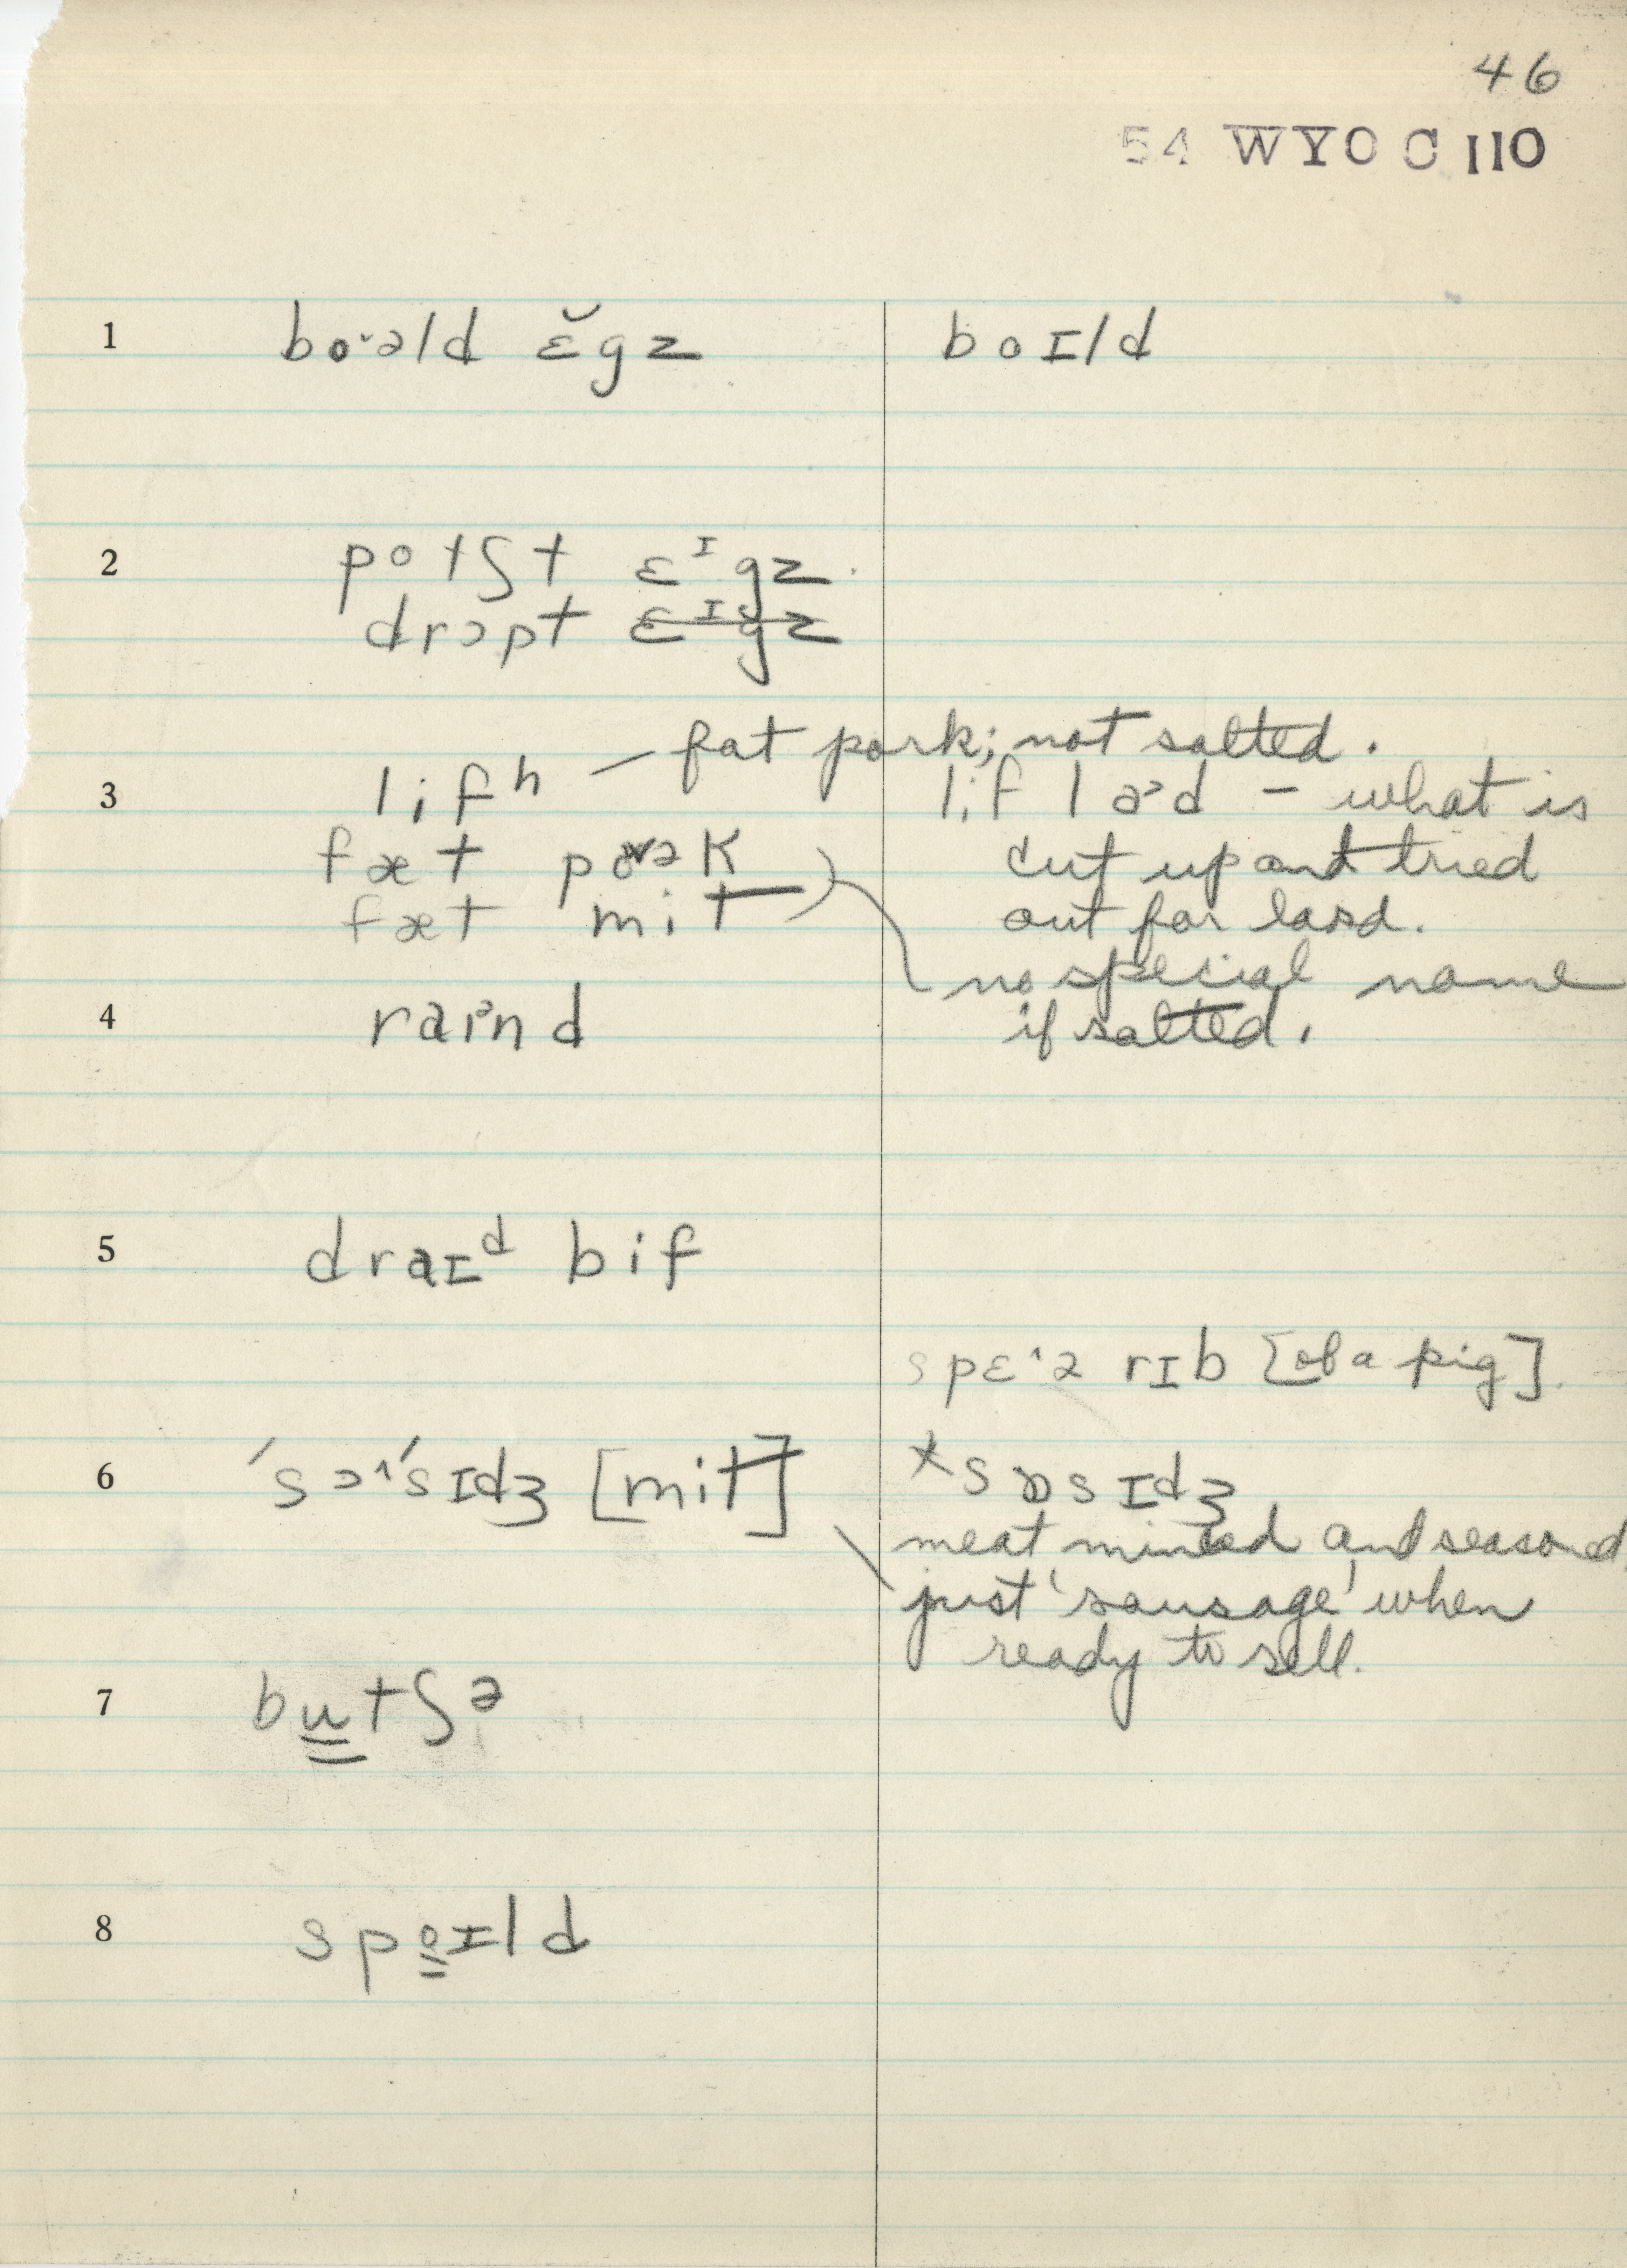 46
54 WYO C 110
1 bo˞əld ɛ̆gz boɪld
2 potʃt ɛᶦgz
drɔpt ɛᶦgz
— fat pork; not salted.
3 lifʰ lif laᵊd – what is
fæt poək cut up and tried
fæt mit out for lard.
no special name
4 raᵊɪnd if salted.
5 draɪᵈ bif
spɛ^ə rɪb [of a pig].
6 ´sɔ^´sɪdʒ [mit] ×sɒsɪdʒ
meat minced and seasoned,
just 'sausage' when
ready to sell.
7 bu̳tʃə
8 spo̳ɪld